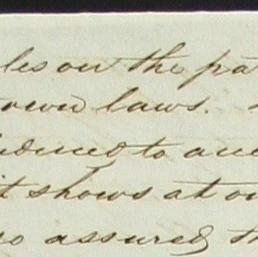 les on the pa
own laws.
duced to a
it shows at on
so assured th